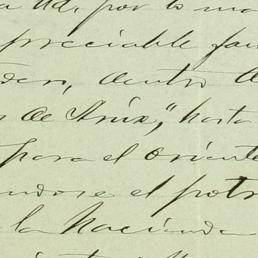 a Ud, por lo mo
preciable fam
dentro d
de Aríux," hasta
para el oriente
ndose el potr
la Hacienda